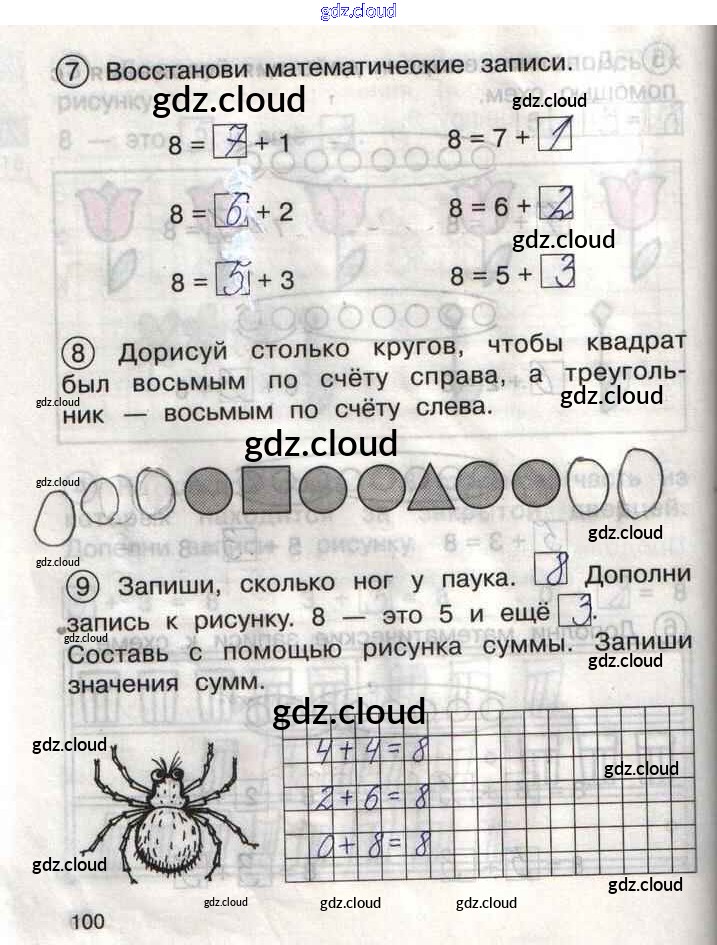 gdz.cloud
7 Восстанови математические записи.
gdz.cloud gdz.cloud
8 = 7 + 1 8 = 7 + 1
8 = 6 + 2 8 = 6 + 2
gdz.cloud
8 = 5 + 3 8 = 5 + 3
gdz.cloud
8 Дорисуй столько кругов, чтобы квадрат
был восьмым по счёту справа, а треуголь-
gdz.cloud gdz.cloud
ник — восьмым по счёту слева.
gdz.cloud
gdz.cloud
gdz.cloud
gdz.cloud
9 Запиши, сколько ног у паука. 8 Дополни
запись к рисунку. 8 — это 5 и ещё 3.
gdz.cloud
Составь с помощью рисунка суммы. Запиши
gdz.cloud
значения сумм.
gdz.cloud
gdz.cloud
4 + 4 = 8
gdz.cloud
2 + 6 = 8
0 + 8 = 8
gdz.cloud
gdz.cloud
gdz.cloud gdz.cloud gdz.cloud
100